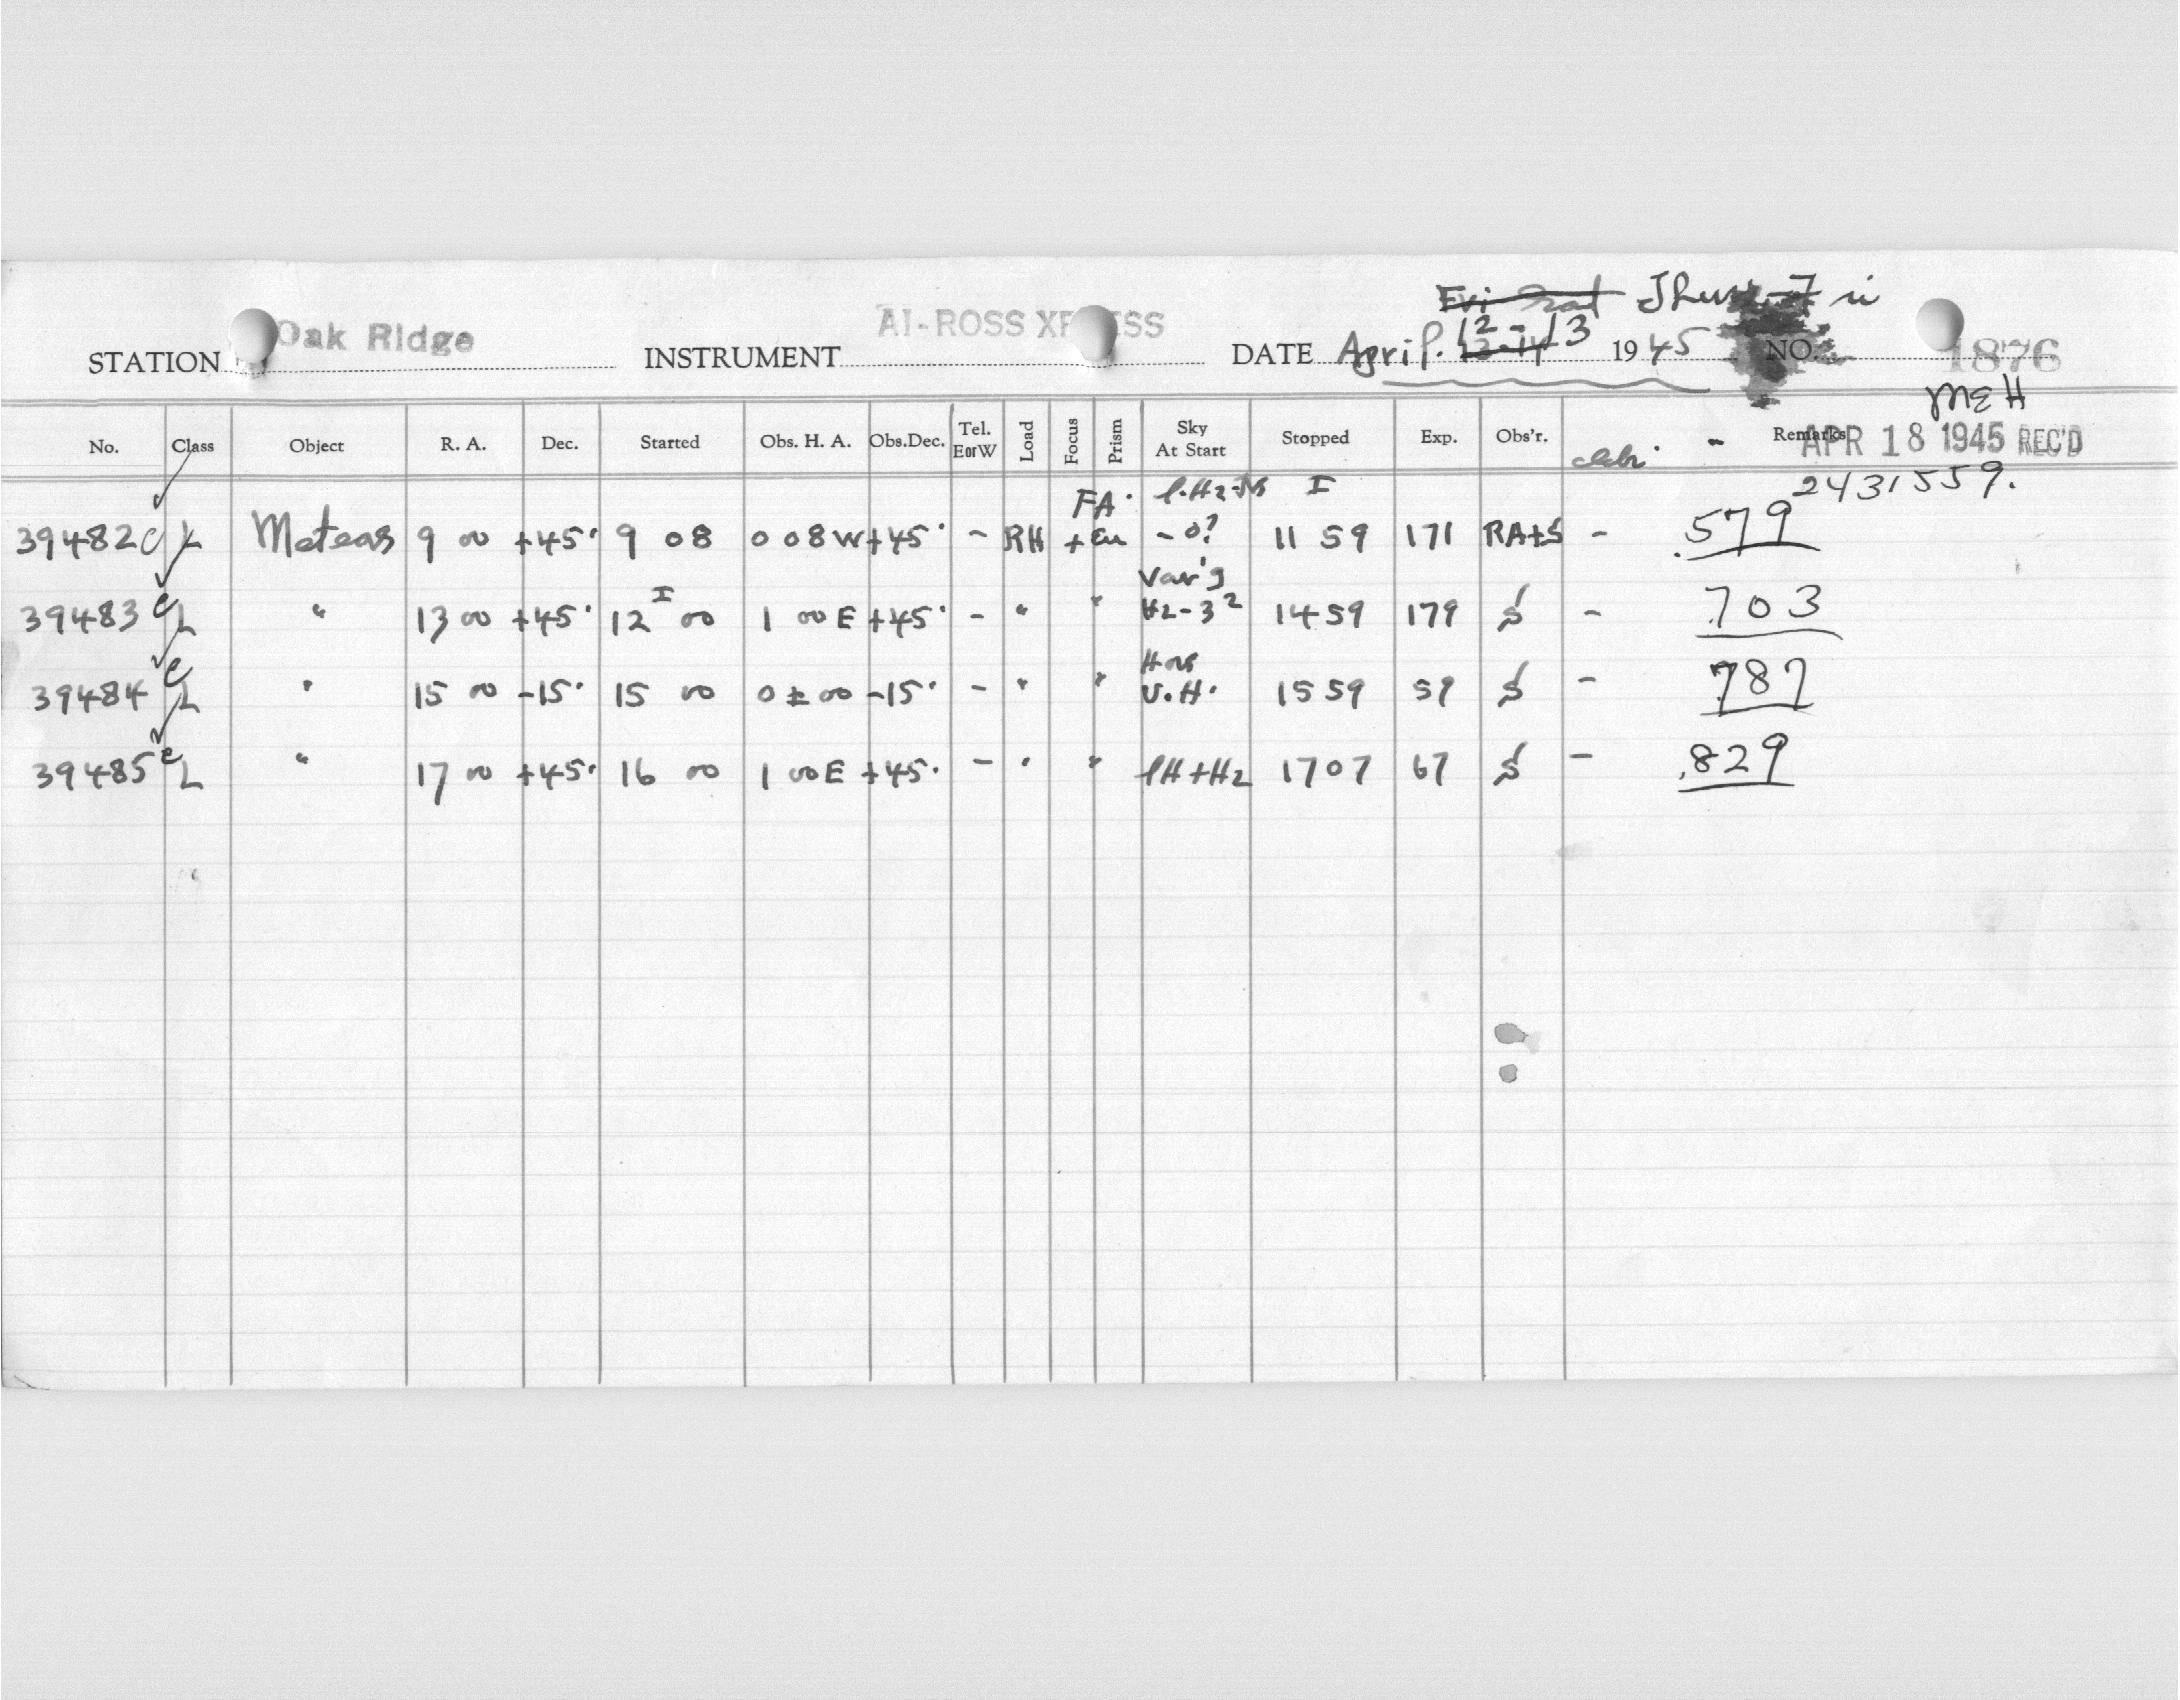 Thurs
STATION Oak Ridge INSTRUMENT AI-ROSS XPRESS DATE April 12-13 1945 NO. 1876
MEH
No. Class Object R. A. Dec. Started Obs. H. A. Obs.Dec. Tel. EorW Load Focus Prism Sky At Start Stopped Exp. Obs'r. Remarks APR 18 1945 REC'D
2431559.
39482 C L Meteors 9 00 +45° 9 08 0 08W +45° - RH FA. - 0? 11 59 171 RA+S - .579
39483 C L " 13 00 +45° 12 00 1 00E +45° - " " Var'g Hz-3² 14 59 179 S - .703
39484 C L " 15 00 -15° 15 00 0 ± 00 -15° - " " V.H. 15 59 59 S - .787
39485 C L " 17 00 +45° 16 00 1 00E +45° - " " lH+Hz 17 07 67 S - .829